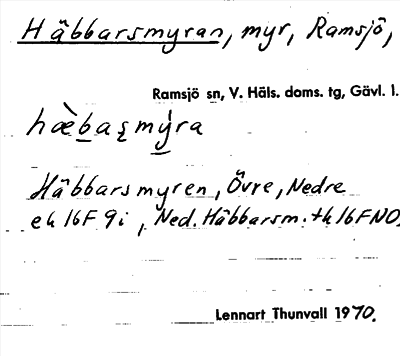 Häbbarsmyran, myr, Ramsjö,
Ramsjö sn, V. Häls. doms. tg, Gävl. l.
hæ̀baʂmýra
Häbbarsmyren, Övre, Nedre
ek 16F 9i, Ned. Häbbarsm. tk 16F NO.
Lennart Thunvall 1970.